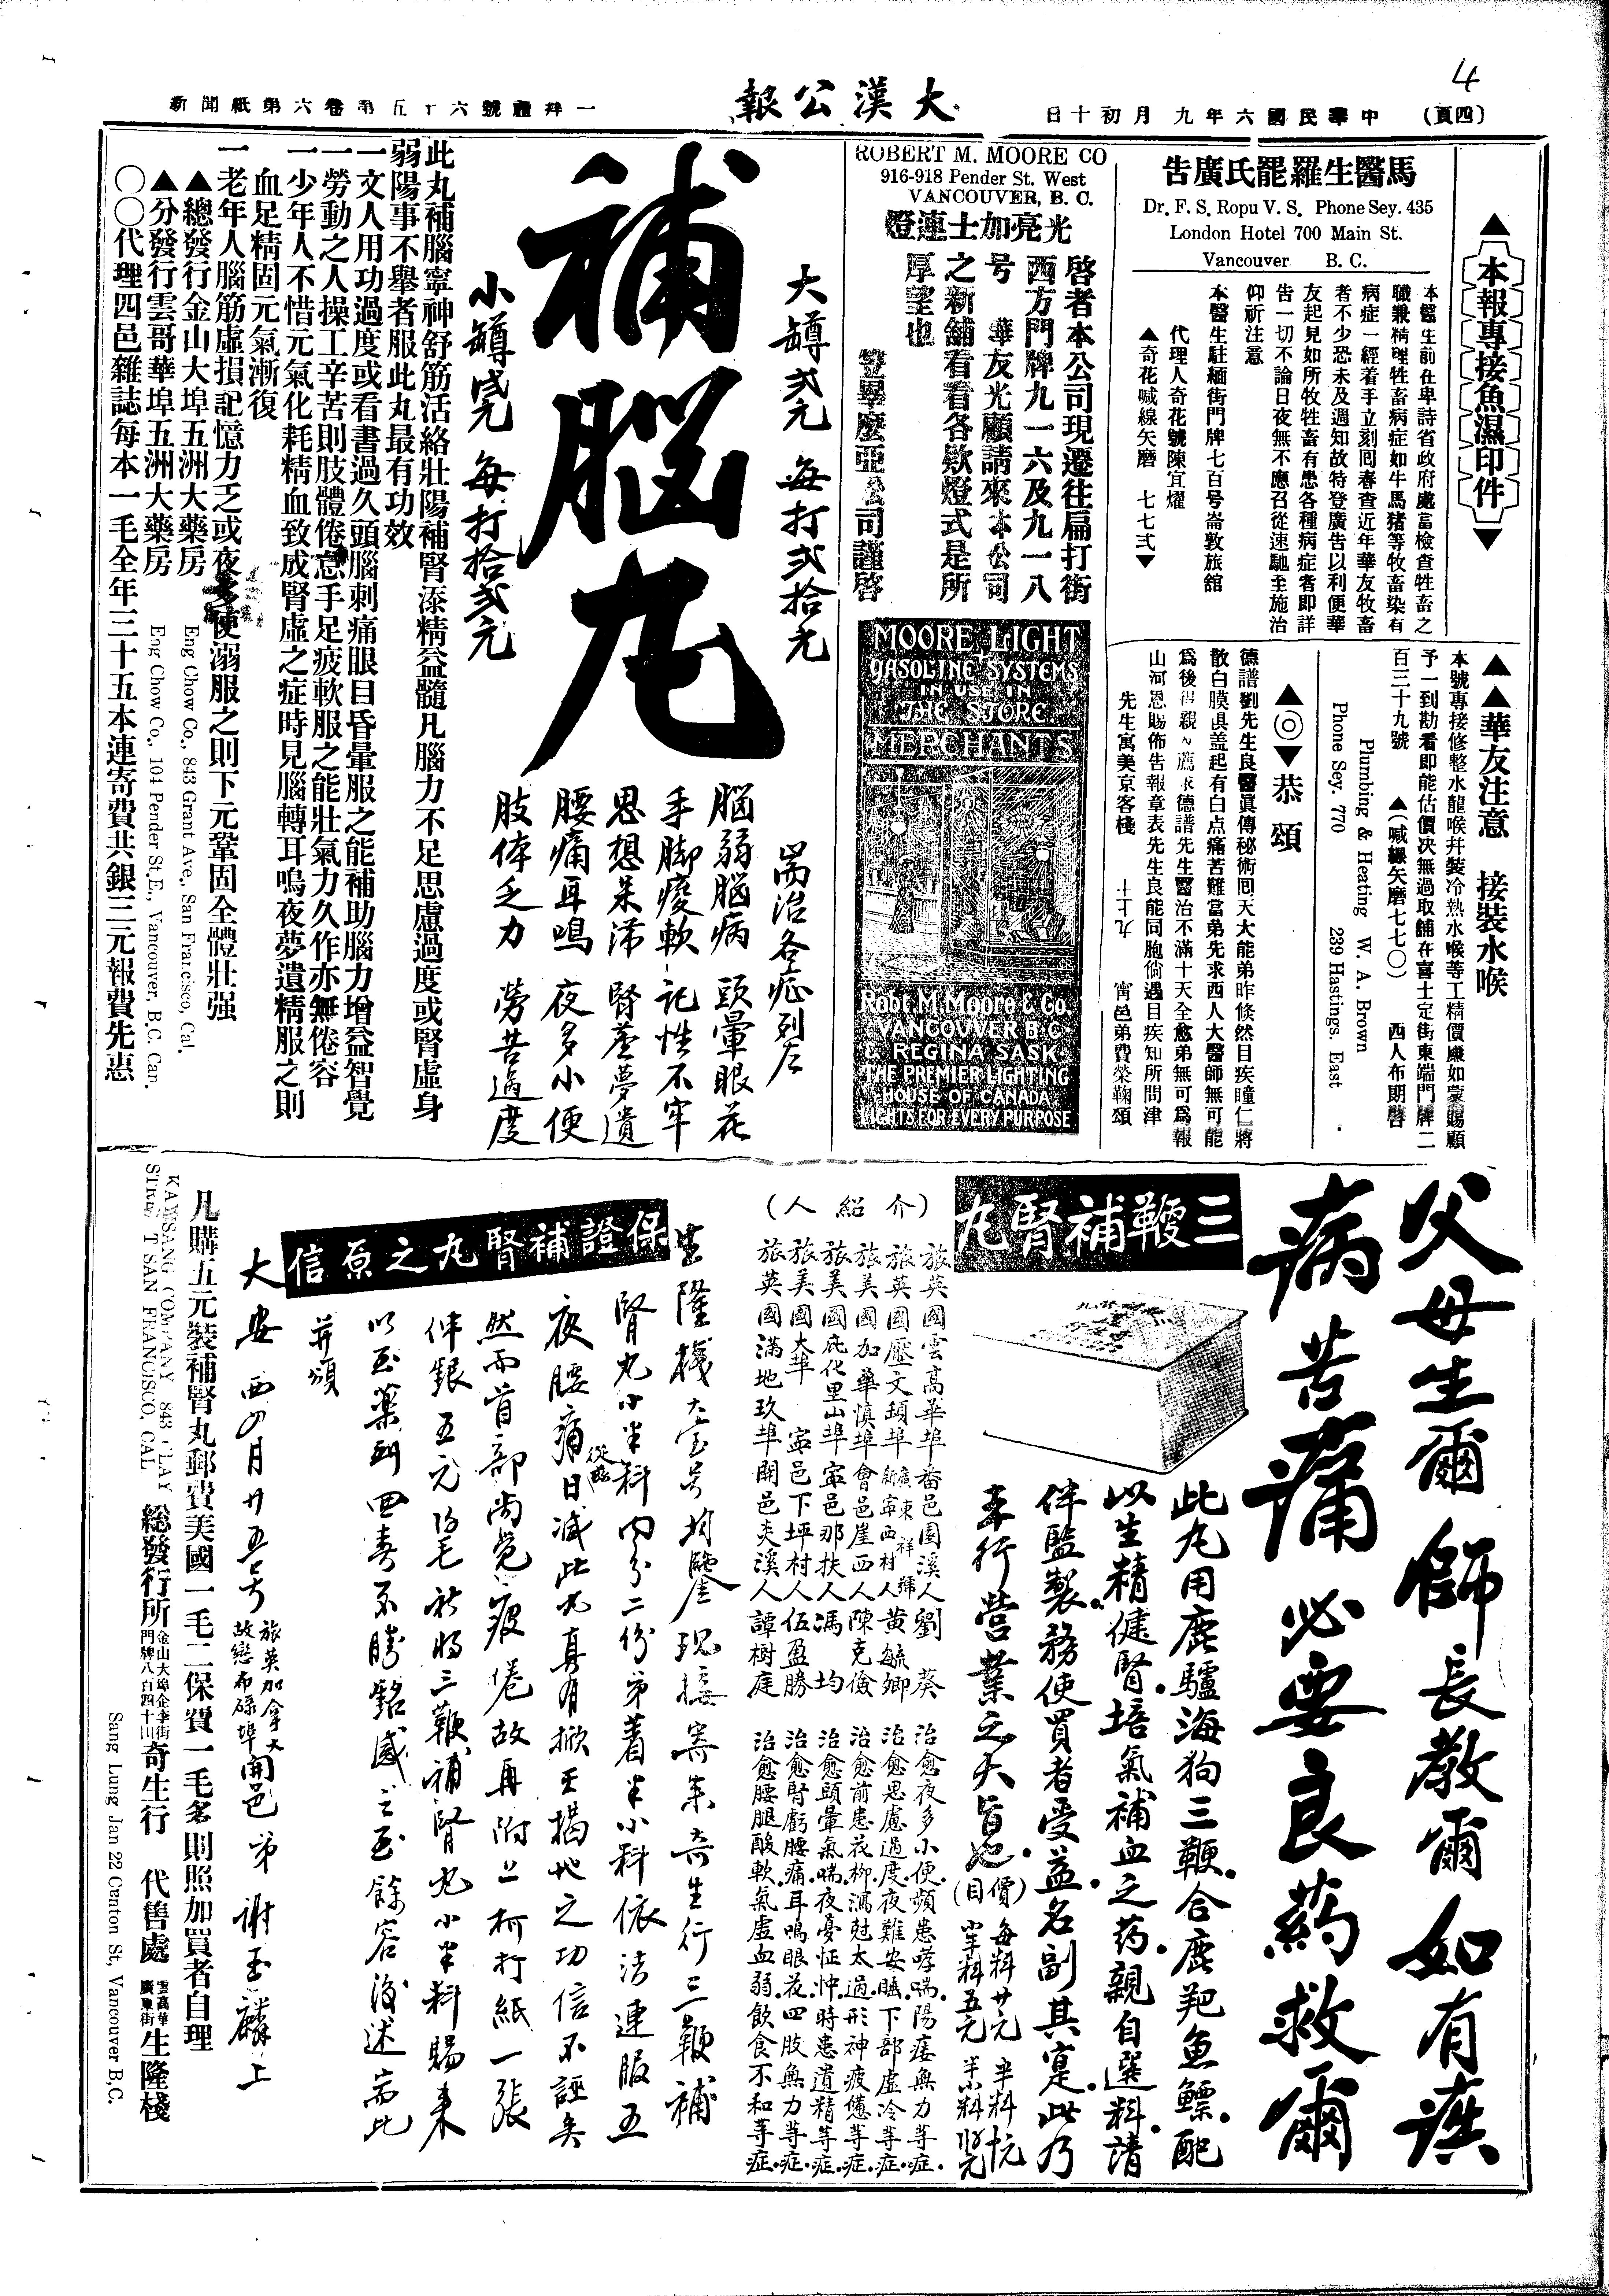 4
(四頁)
中華民國六年九月初十日
大漢公報
一拜禮號六十五第卷六第紙聞新
▲本報專接魚濕印件▼
馬醫生羅罷氏廣告
Dr. F. S. Ropu V. S. Phone Sey. 435
London Hotel 700 Main St.
Vancouver B. C.
本醫生前在卑詩省政府處當檢查牲畜之
職兼精理牲畜病症如牛馬猪等牧畜染有
病症一經着手立刻囘春查近年華友牧畜
者不少恐未及週知故特登廣告以利便華
友起見如所牧牲畜有患各種病症者即詳
告一切不論日夜無不應召從速馳至施治
仰祈注意
本醫生駐緬街門牌七百号崙敦旅舘
代理人奇花號陳宜燿
▲奇花喊線矢磨 七七弍▼
▲▲華友注意 接裝水喉
本號專接修整水龍喉幷裝冷熱水喉等工精價廉如蒙賜顧
予一到勘看即能估價决無過取舖在喜士定街東端門牌二
百三十九號 ▲(喊線矢磨七七〇) 西人布期啓
Plumbing & Heating W. A. Brown
Phone Sey. 770 239 Hastings. East
▲◎▼恭頌
德譜劉先生良醫眞傳秘術囘天大能弟昨倐然目疾瞳仁將
散白膜俱盖起有白点痛苦難當弟先求西人大醫師無可能
爲後得親々薦求德譜先生醫治不滿十天全愈弟無可爲報
山河恩賜佈告報章表先生良能同胞倘遇目疾知所問津
先生寓美京客棧 七十九 甯邑弟費榮鞠頌
ROBERT M. MOORE CO
916-918 Pender St. West
VANCOUVER, B. C.
光亮加士連燈
啓者本公司現遷往扁打街
西方門牌九一六及九一八
号 華友光顧請來本公司
之新舖看看各欵燈式是所
厚望也
笠畢麽亞公司謹啓
MOORE LIGHT
GASOLINE SYSTEMS
IN USE IN
THE STORE
MERCHANTS
Robt. M. Moore & Co.
VANCOUVER B.C.
& REGINA SASK.
THE PREMIER LIGHTING
HOUSE OF CANADA
LIGHTS FOR EVERY PURPOSE
大罇弍元 每打弍拾元
補腦丸
小罇壹元 每打拾弍元
耑治各症列左
腦弱腦病 頭暈眼花
手脚痠軟 記性不牢
思想呆滯 腎虧夢遺
腰痛耳鳴 夜多小便
肢体乏力 勞苦過度
此丸補腦寧神舒筋活絡壯陽補腎添精益髓凡腦力不足思慮過度或腎虛身
弱陽事不舉者服此丸最有功效
一文人用功過度或看書過久頭腦刺痛眼目昏暈服之能補助腦力增益智覺
一勞動之人操工辛苦則肢體倦怠手足疲軟服之能壯氣力久作亦無倦容
一少年人不惜元氣化耗精血致成腎虛之症時見腦轉耳鳴夜夢遺精服之則
血足精固元氣漸復
一老年人腦筋虛損記憶力乏或夜多使溺服之則下元鞏固全體壯强
▲總發行金山大埠五洲大藥房 Eng Chow Co., 843 Grant Ave., San Francisco, Cal.
▲分發行雲哥華埠五洲大藥房 Eng Chow Co., 104 Pender St. E., Vancouver, B.C. Can.
〇〇代理四邑雜誌每本一毛全年三十五本連寄費共銀三元報費先惠
父母生爾 師長教爾 如有疾
病苦痛 必要良藥救爾
三鞭補腎丸
此丸用鹿驢海狗三鞭合鹿羓魚鰾配
以生精健腎培氣補血之药親自選料請
伴監製務使買者受益名副其寔此乃
本行營業之大旨也
(價目) 每料廿元 半料十元
小半料五元
(介紹人)
旅英國雲高華埠番邑園溪人劉葵 治愈夜多小便頻患哮喘陽痿無力等症
旅英國壓文頓埠廣東祥號新寧西村人黃毓卿 治愈思慮過度夜難安睡下部虛冷等症
旅美國加華慎埠會邑崖西人陳克儉 治愈前患花柳瀉尅太過形神疲憊等症
旅美國庇化里山埠寧邑那扶人馮均 治愈頭暈氣喘夜憂怔忡時患遺精等症
旅美國大埠 寧邑下坪村人伍盈勝 治愈腎虧腰痛耳鳴眼花四肢無力等症
旅英國滿地玖埠開邑炎溪人譚樹庭 治愈腰腿酸軟氣虛血弱飲食不和等症
保證補腎丸之原信
生隆棧大宝号均鑒現接寄來奇生行三鞭補
腎丸小半料內分二份弟着半小料依法連服五
夜腰痛從愈日减此丸真有掀天揭地之功信不誣矣
然而首部尚覺疲倦故再附上柯打紙一張
伴銀五元乃毛祈將三鞭補腎丸小半料賜來
以至藥到回春不勝銘感之至餘容後述耑此
并頌
大安 西四月廿五号 旅英加拿大故戀布碌埠開邑弟謝玉麟上
凡購五元裝補腎丸郵費美國一毛二保費一毛多則照加買者自理
KAWSANG COMPANY 843 CLAY
STREET SAN FRANCISCO, CAL
総發行所金山大埠企李街門牌八百四十三奇生行 代售處雲高華廣東街生隆棧
Sang Lung Jan 22 Canton St, Vancouver B.C.